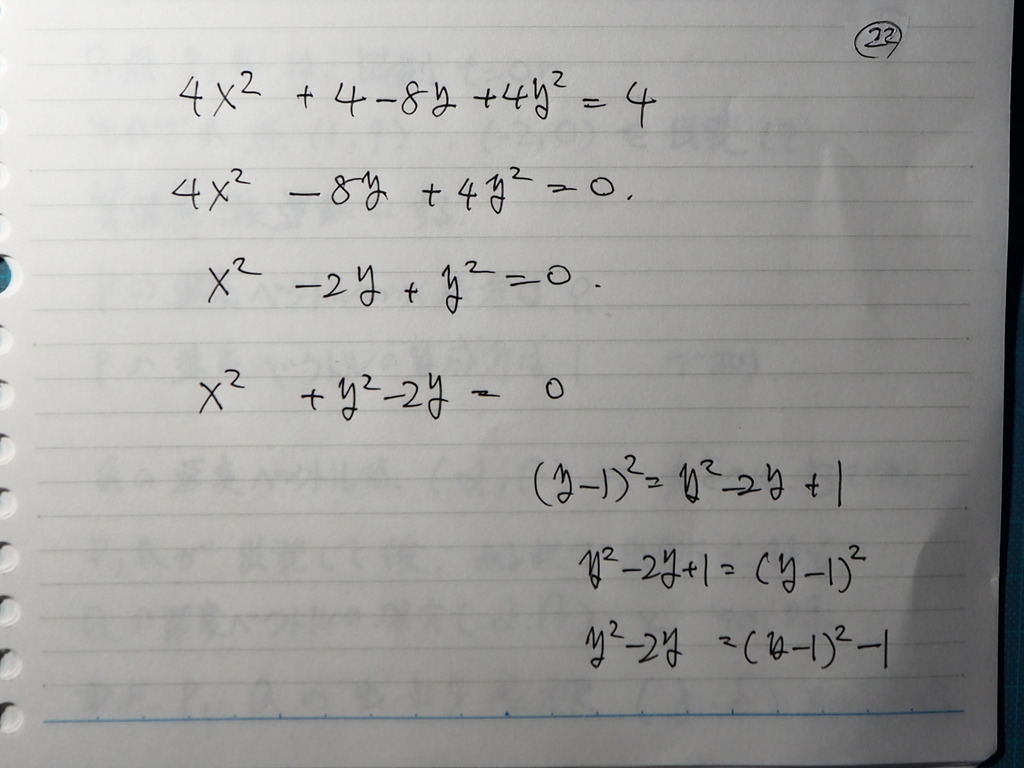 22
4x² + 4 - 8y + 4y² = 4
4x² - 8y + 4y² = 0.
x² - 2y + y² = 0.
x² + y² - 2y = 0
(y-1)² = y² - 2y + 1
y² - 2y + 1 = (y-1)²
y² - 2y = (y-1)² - 1